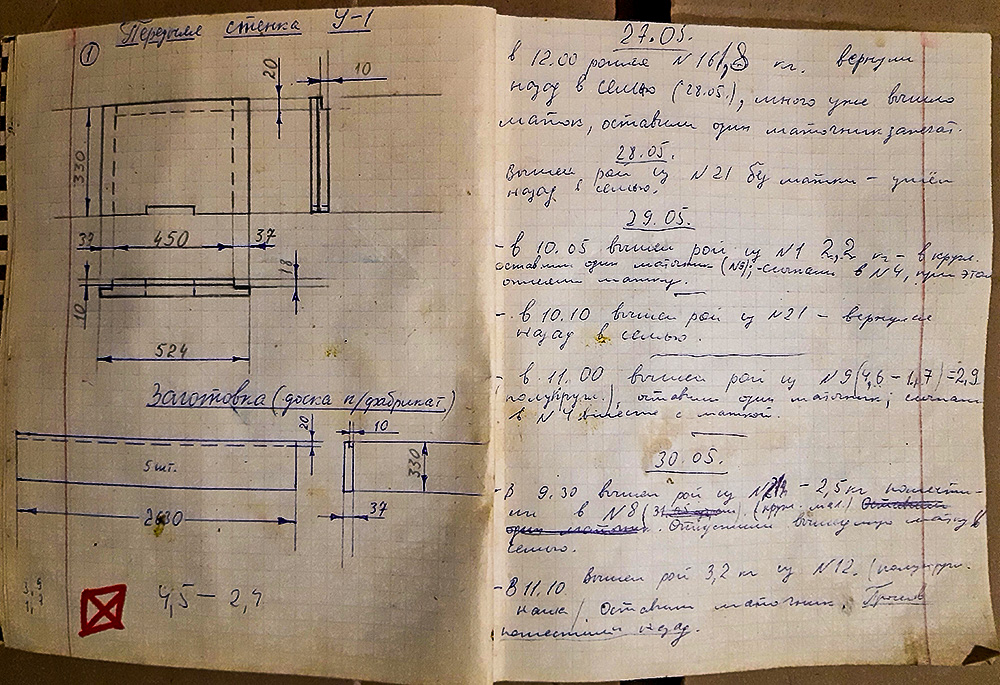 Передняя стенка У-1
1
20
10
330
37
450
37
18
10
524
Заготовка (доска п/фабрикат)
20
10
5 шт.
330
2630
37
4,5 - 2,4
27.05.
в 12.00 роился N 16 1,8 кг. вернули
назад в семью (28.05.), много уже вышло
маток, оставили один маточник запечат.
28.05.
Вышел рой из N 21 без матки - ушёл
назад в семью.
29.05.
- в 10.05 вышел рой из N1 2,2 кг - в кругл.
оставили один маточник (N5); ссыпали в N4, при этом
отняли матку.
- в 10.10 вышел рой из N21 - вернулся
назад в семью.
- в 11.00 вышел рой из N9 (4,6 - 1,7) = 2,9
(полукругл.), оставили один маточник; ссыпали
в N4 вместе с маткой.
30.05.
- В 9.30 вышел рой из - 2,5 кг
в N8 (кругл. мал.)
Отпустили вышедшую матку в
семью.
- В 11.10 вышел рой 3,2 кг из N12. (полукругл.
Оставили маточник.
поместили назад.